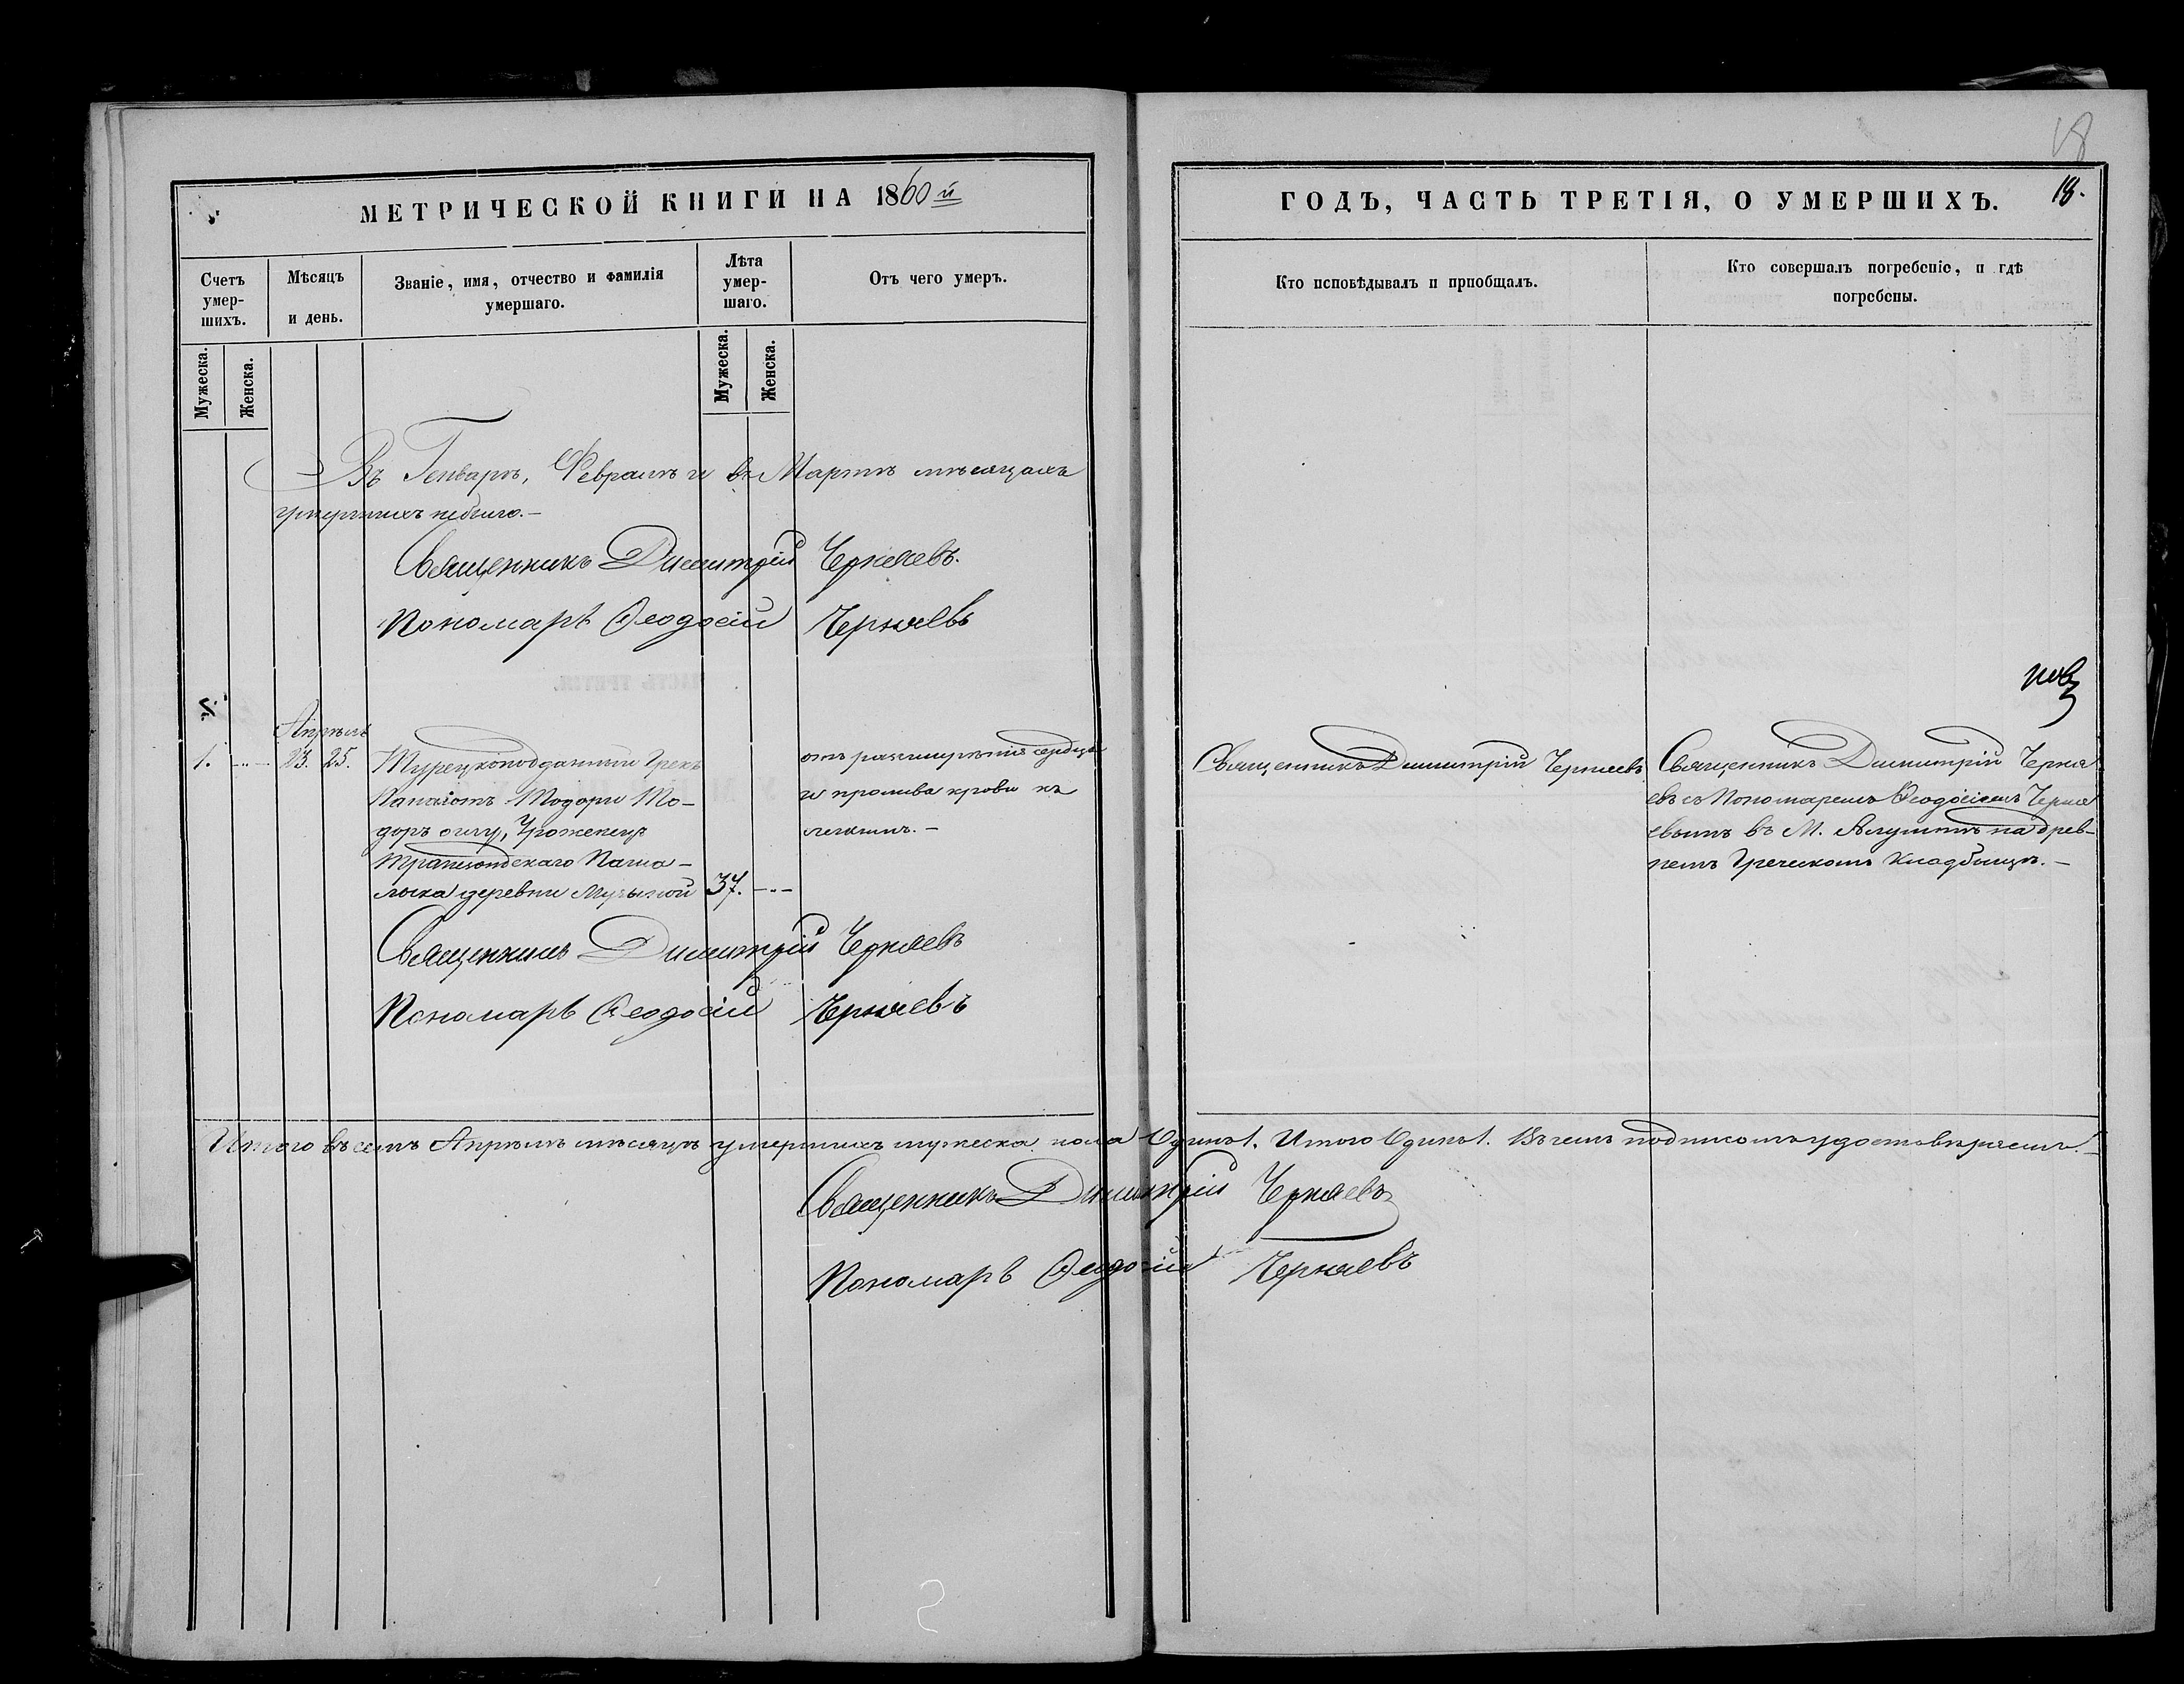 МЕТРИЧЕСКОЙ КНИГИ НА 1860й
Счетъ умер-шихъ.
Мѣсяцъ и день.
Званіе, имя, отчество и фамилія умершаго.
Лѣта умер-шаго.
Отъ чего умеръ.
Мужеска.
Женска.
Мужеска.
Женска.
Въ Генварѣ, Февралѣ и въ Мартѣ мѣсяцахъ
умершихъ небыло.—
Священникъ Димитрій Черняевъ.
Пономарь Ѳеодосій Черняевъ
Апрѣль
1. 23. 25.
Турецкоподданный Грекъ
Панаіотъ Тодори То-
доръ оглу, Уроженецъ
Трапезондскаго Паша-
лыка деревни
37.
отъ разширѣнія сердца
и пролива крови къ
легкимъ.—
Священникъ Димитрій Черняевъ
Пономарь Ѳеодосій Черняевъ
Итого въ семъ Апрѣлѣ мѣсяцѣ умершихъ мужеска пола Одинъ 1. Итого Одинъ 1. Въ чемъ подписомъ удостовѣряемъ.
Священникъ Димитрій Черняевъ
Пономарь Ѳеодосій Черняевъ
18
18.
ГОДЪ, ЧАСТЬ ТРЕТІЯ, О УМЕРШИХЪ.
Кто исповѣдывалъ и пріобщалъ.
Кто совершалъ погребеніе, и гдѣ
погребены.
Священникъ Димитрій Черняевъ
Священникъ Димитрій Черня
евъ съ Пономаремъ Ѳеодосіемъ Черня
евымъ въ М. Алуштѣ на древ-
немъ Греческомъ Кладбищѣ.—